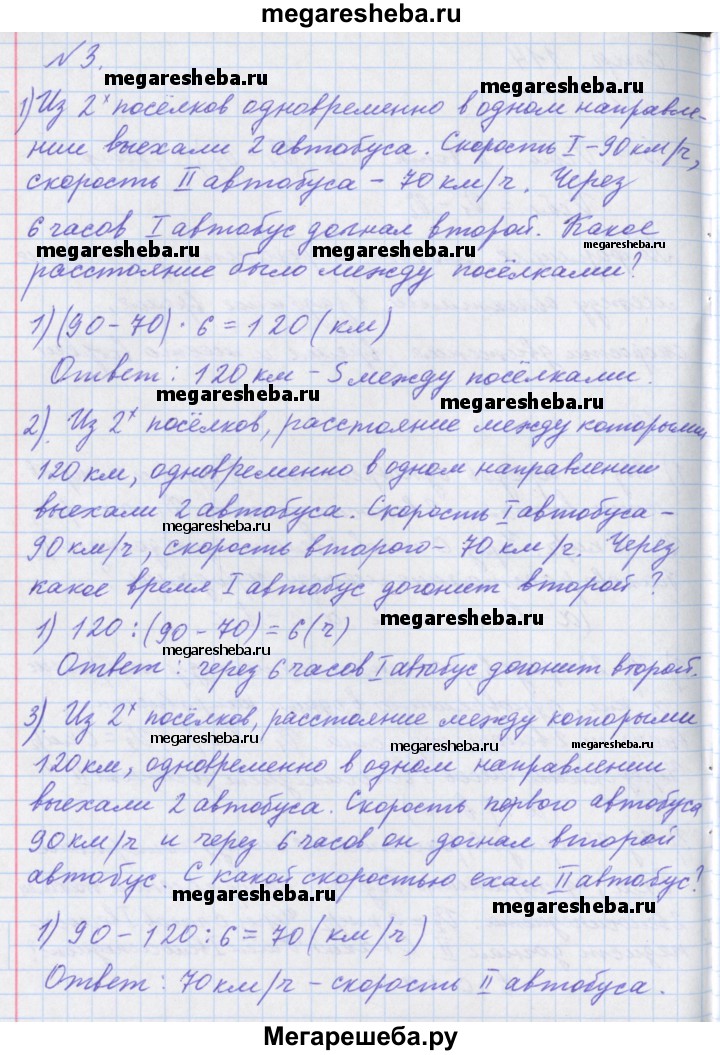 megaresheba.ru
N 3.
megaresheba.ru
1) Из 2х посёлков одновременно в одном направле-
нии выехали 2 автобуса. Скорость I – 90 км/ч,
скорость II автобуса – 70 км/ч. Через
6 часов I автобус догнал второй. Какое
megaresheba.ru megaresheba.ru megaresheba.ru
расстояние было между посёлками?
1) (90 – 70) · 6 = 120 (км)
Ответ: 120 км – S между посёлками.
megaresheba.ru megaresheba.ru
2). Из 2х посёлков, расстояние между которыми
120 км, одновременно в одном направлении
выехали 2 автобуса. Скорость I автобуса –
megaresheba.ru megaresheba.ru
90 км/ч, скорость второго – 70 км/ч. Через
какое время I автобус догонит второй?
megaresheba.ru
1) 120 : (90 – 70) = 6 (ч)
Ответ: через 6 часов I автобус догонит второй.
3). Из 2х посёлков, расстояние между которыми
megaresheba.ru megaresheba.ru megaresheba.ru
120 км, одновременно в одном направлении
выехали 2 автобуса. Скорость первого автобуса
90 км/ч и через 6 часов он догнал второй
автобус. С какой скоростью ехал II автобус?
megaresheba.ru megaresheba.ru
1) 90 – 120 : 6 = 70 (км/ч)
Ответ: 70 км/ч – скорость II автобуса.
Мегарешеба.ру